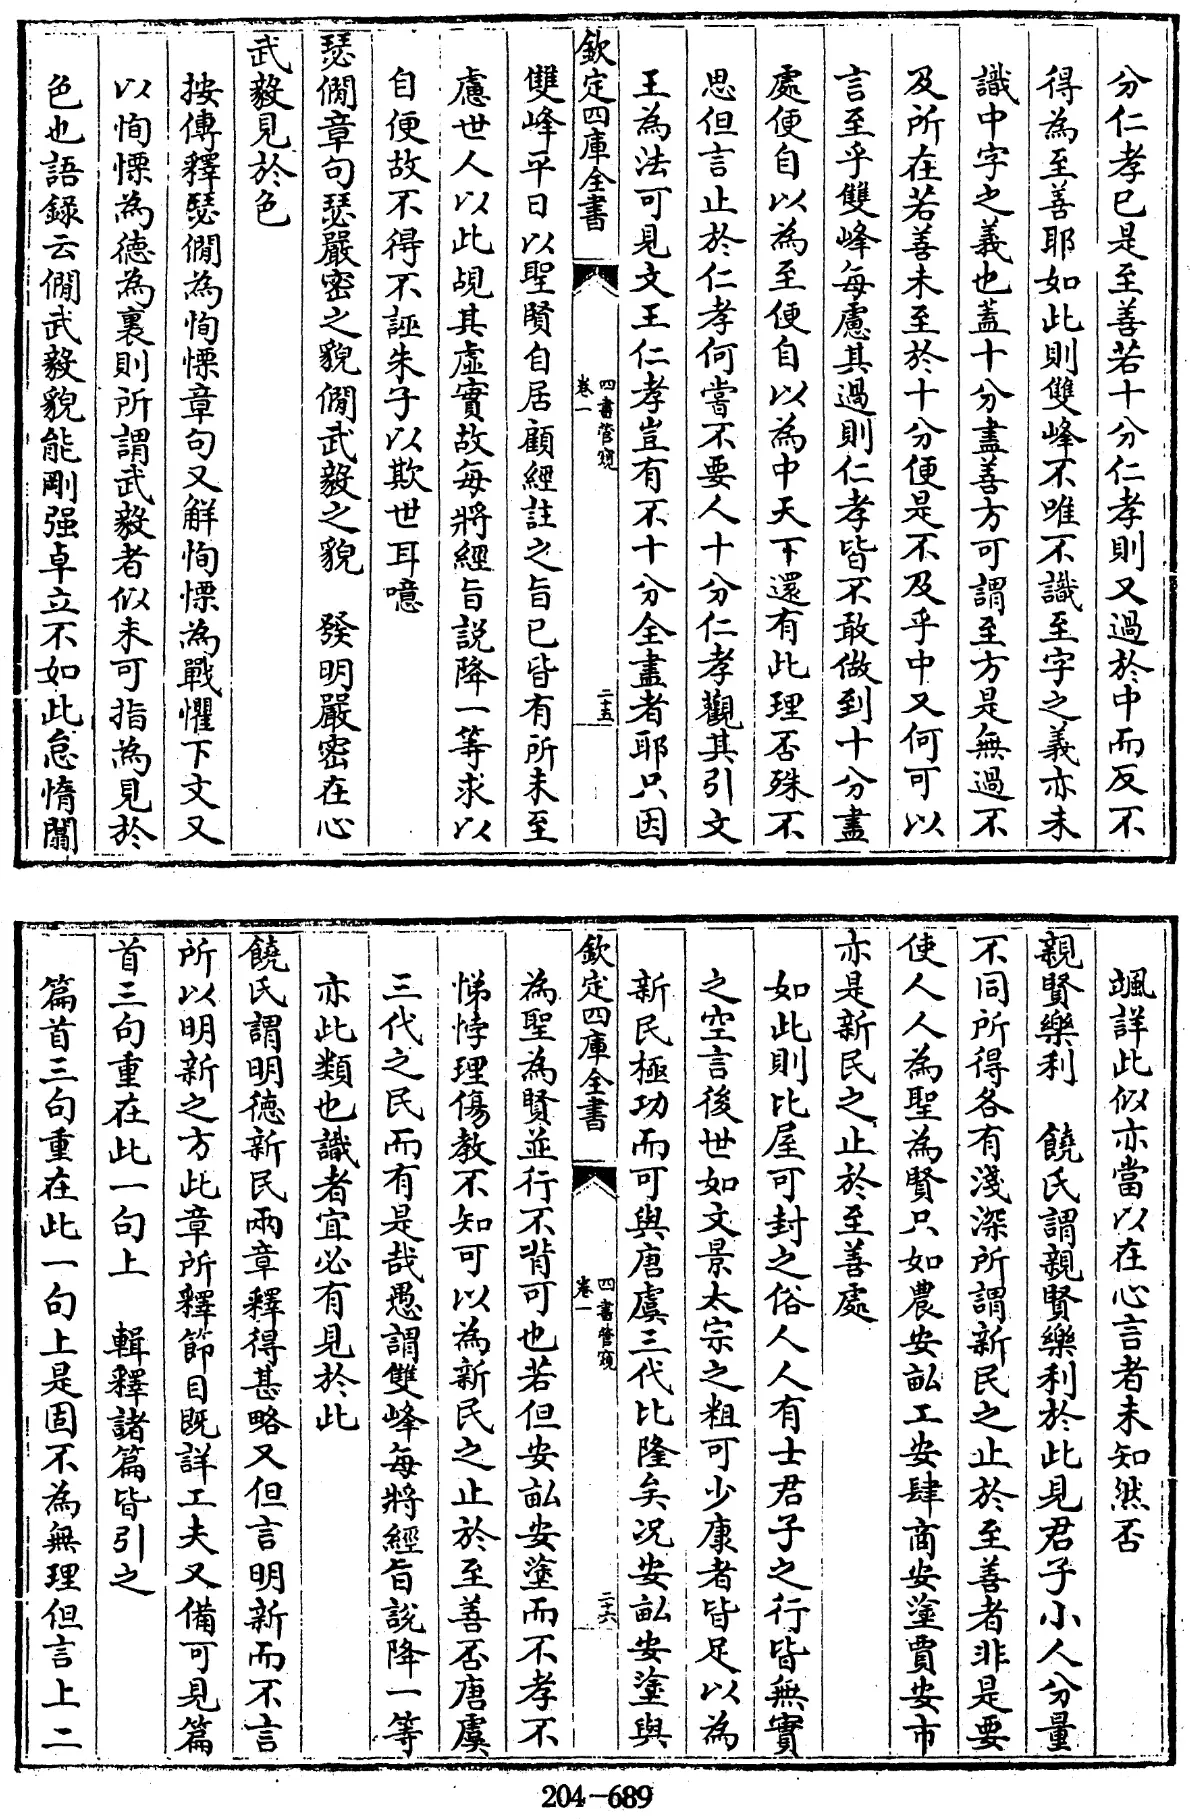 分仁孝已是至善若十分仁孝則又過於中而反不
得為至善耶如此則雙峰不唯不識至字之義亦未
識中字之義也蓋十分盡善方可謂至方是無過不
及所在若善未至於十分便是不及乎中又何可以
言至乎雙峰每慮其過則仁孝皆不敢做到十分盡
處便自以為至便自以為中天下還有此理否殊不
思但言止於仁孝何嘗不要人十分仁孝觀其引文
王為法可見文王仁孝豈有不十分全盡者耶只因
欽定四庫全書
四書管窺
卷一
二十五
雙峰平日以聖賢自居顧經註之旨已皆有所未至
慮世人以此覘其虛實故每將經旨説降一等求以
自便故不得不誣朱子以欺世耳噫
瑟僴章句瑟嚴密之貌僴武毅之貌 發明嚴密在心
武毅見於色
按傳釋瑟僴為恂慄章句又解恂慄為戰懼下文又
以恂慄為德為裏則所謂武毅者似未可指為見於
色也語錄云僴武毅貌能剛强卓立不如此怠惰闒
颯詳此似亦當以在心言者未知然否
親賢樂利 饒氏謂親賢樂利於此見君子小人分量
不同所得各有淺深所謂新民之止於至善者非是要
使人人為聖為賢只如農安畝工安肆商安塗賈安市
亦是新民之止於至善處
如此則比屋可封之俗人人有士君子之行皆無實
之空言後世如文景太宗之粗可少康者皆足以為
新民極功而可與唐虞三代比隆矣况安畝安塗與
欽定四庫全書
四書管窺
卷一
二十六
為聖為賢並行不背可也若但安畝安塗而不孝不
悌悖理傷教不知可以為新民之止於至善否唐虞
三代之民而有是哉愚謂雙峰每將經旨説降一等
亦此類也識者宜必有見於此
饒氏謂明德新民兩章釋得甚略又但言明新而不言
所以明新之方此章所釋節目既詳工夫又備可見篇
首三句重在此一句上 輯釋諸篇皆引之
篇首三句重在此一句上是固不為無理但言上二
204-689